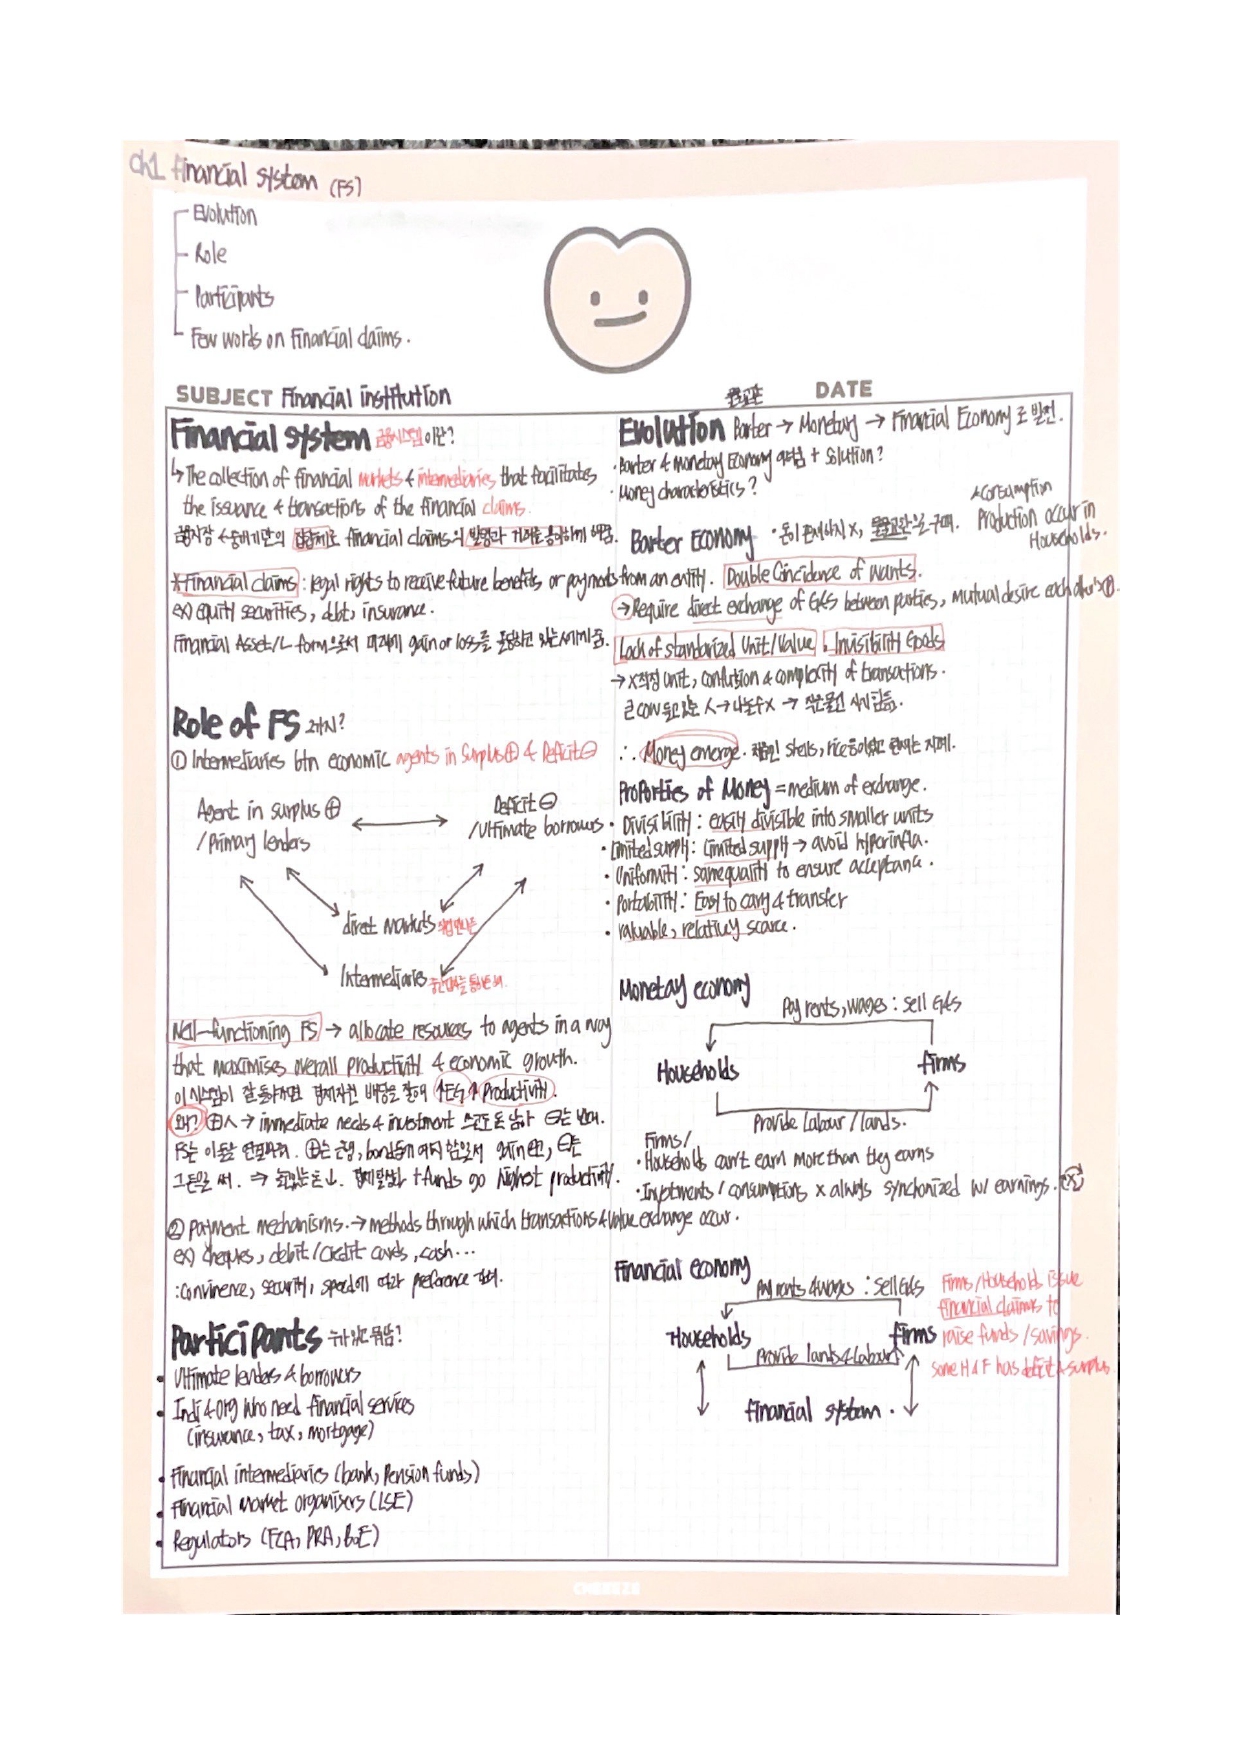 Ch1 Financial system (FS)
Evolution
Role
Participants
Few words on Financial claims.
SUBJECT Financial institution
물교환
DATE
Financial system 금융시스템이란?
↳ The collection of financial markets & intermediaries that facilitates
the issuance & transactions of the financial claims.
금융시장 & 중개기관의 집합체로 financial claims의 발행과 거래를 용이하게 해줌.
*Financial claims : legal rights to receive future benefits or payments from an entity.
ex) equity securities, debt, insurance.
Financial Asset/L form으로서 미래에 gain or loss를
Role of FS 머시?
① Intermediaries btn economic agents in Surplus⊕ & Deficit⊖
Agent in surplus ⊕
/Primary lenders
Deficit ⊖
/Ultimate borrows
direct markets 직접만나는
Intermediaries 중간다리를 통해서
Well-functioning FS → allocate resources to agents in a way
that maximises overall productivity & economic growth.
이 시스템이 잘 돌아가면 경제자원 배당을 잘해 ↑EG ↑Productivity.
왜? ⊕人 → immediate needs & investment 쓰고도 돈 남아 ⊖는 반대.
FS는 이 둘을 연결시켜. ⊕는 은행, bond등에
그 돈을 써. ⇒ 경제발전 & funds go highest productivity.
② Payment mechanisms. → methods through which transactions & value exchange occur.
ex) cheques, debit/credit cards, cash...
: convinence, security, speed에 따라 preference 정해.
Participants 누가 있고 뭐함?
• Ultimate lenders & borrowers
• Indi & org who need financial services
(insurance, tax, mortgage)
• Financial intermediaries (bank, Pension funds)
• Financial market organisers (LSE)
• Regulators (FCA, PRA, BoE)
Evolution Barter → Monetary → Financial Economy로 발전.
• Barter & Monetary Economy 약점 + solution?
• Money characteristics?
Barter Economy • 돈이 존재하지 X, 물물교환으로 구매.
*Consumption
Production occur in
Households.
Double Coincidence of wants.
→ Require direct exchange of G&S between parties, mutual desire each other's
Lack of standarized Unit/Value : Invisibility Goods
→ X 측정 unit, confusion & complexity of transactions.
큰 cow 들고 있는 人 → 나눌 수 X → 작은 물건 사기 힘듦.
∴ Money emerge. shells, rice
Proporties of Money = medium of exchange.
• Divisibility : easily divisible into smaller units
• Limited supply : Limited supply → avoid hyperinfla.
• Uniformity : same quality to ensure acceptance.
• Portability : Easy to carry & transfer
• Valuable, relatively scarce.
Monetay economy
Pay rents, wages : sell G&S
Households
firms
Provide Labour / lands.
Firms/
• Households can't earn more than they earns
• Invstments / consumptions x always synchonized w/ earnings.
Financial economy
Pay rents & wages : Sell G&S
Households
firms
Provide lands & Labour
financial system.
Firms/Household issue
financial claims to
raise funds / savings.
some H & F has deficit & surplus
CHEEEZE